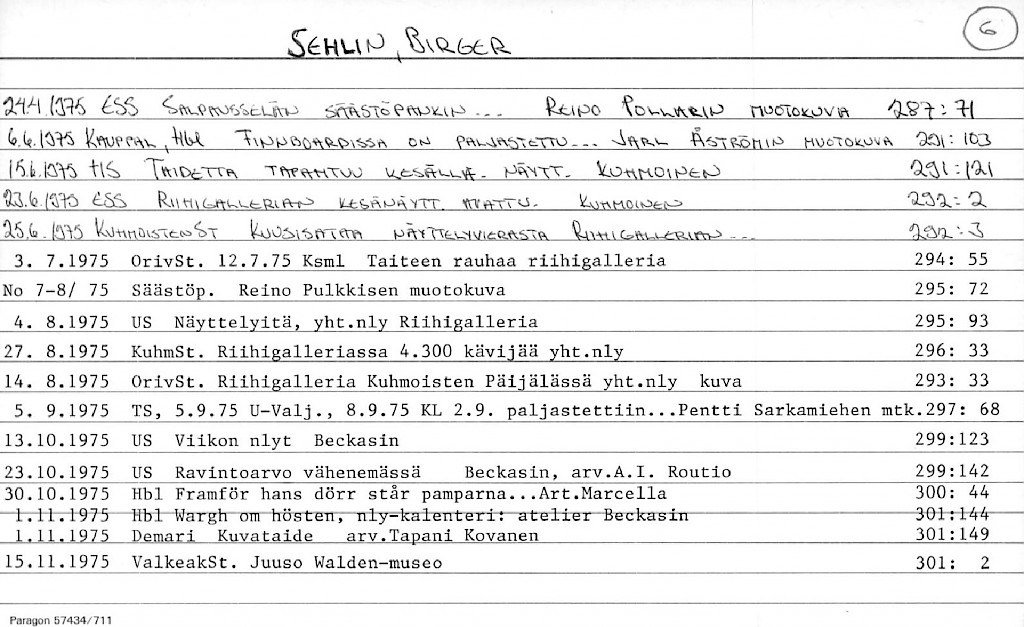 SEHLIN, BIRGER
6
24.4.1975 ESS SALPAUSSELÄN SÄÄSTÖPANKIN... REINO POLLARIN MUOTOKUVA 287:71
6.6.1975 KAUPPAL, Hbl FINNBOARDISSA ON PALJASTETTU... JARL ÅSTRÖMIN MUOTOKUVA 291:103
15.6.1975 HS TAIDETTA TAPAHTUU KESÄLLÄ. NÄYTT. KUHMOINEN 291:121
23.6.1975 ESS RIIHIGALLERIAN KESÄNÄYTT. AVATTU. KUHMOINEN 292:2
25.6.1975 KUHMOISTENST KUUSISATAA NÄYTTELYVIERASTA RIIHIGALLERIAN... 292:3
3. 7.1975 OrivSt. 12.7.75 Ksml Taiteen rauhaa riihigalleria 294: 55
No 7-8/ 75 Säästöp. Reino Pulkkisen muotokuva 295: 72
4. 8.1975 US Näyttelyitä, yht.nly Riihigalleria 295: 93
27. 8.1975 KuhmSt. Riihigalleriassa 4.300 kävijää yht.nly 296: 33
14. 8.1975 OrivSt. Riihigalleria Kuhmoisten Päijälässä yht.nly kuva 293: 33
5. 9.1975 TS, 5.9.75 U-Valj., 8.9.75 KL 2.9. paljastettiin...Pentti Sarkamiehen mtk.297: 68
13.10.1975 US Viikon nlyt Beckasin 299:123
23.10.1975 US Ravintoarvo vähenemässä Beckasin, arv.A.I. Routio 299:142
30.10.1975 Hbl Framför hans dörr står pamparna...Art.Marcella 300: 44
1.11.1975 Hbl Wargh om hösten, nly-kalenteri: atelier Beckasin 301:144
1.11.1975 Demari Kuvataide arv.Tapani Kovanen 301:149
15.11.1975 ValkeakSt. Juuso Walden-museo 301: 2
Paragon 57434/711